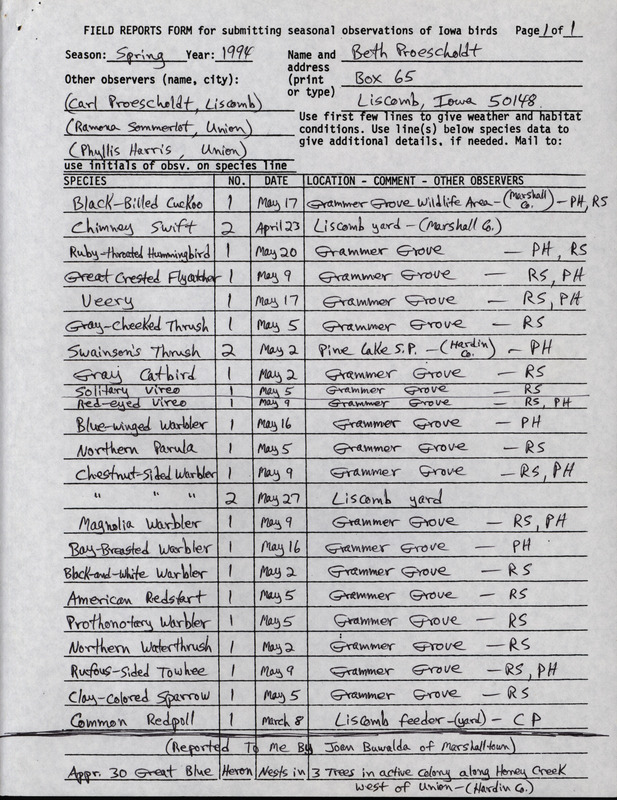 FIELD REPORTS FORM for submitting seasonal observations of Iowa birds Page 1 of 1
Season: Spring Year: 1994
Name and address (print or type) Beth Proescholdt
Box 65
Liscomb, Iowa 50148
Other observers (name, city):
(Carl Proescholdt, Liscomb)
(Ramona Sommerlot, Union)
(Phyllis Harris, Union)
use initials of obsv. on species line
Use first few lines to give weather and habitat
conditions. Use line(s) below species data to
give additional details, if needed. Mail to:
SPECIES NO. DATE LOCATION - COMMENT - OTHER OBSERVERS
Black-Billed Cuckoo 1 May 17 Grammer Grove Wildlife Area - (Marshall Co.) - PH, RS
Chimney Swift 2 April 23 Liscomb yard - (Marshall Co.)
Ruby-throated Hummingbird 1 May 20 Grammer Grove - PH, RS
Great Crested Flycatcher 1 May 9 Grammer Grove - RS, PH
Veery 1 May 17 Grammer Grove - RS, PH
Gray-Cheeked Thrush 1 May 5 Grammer Grove - RS
Swainson's Thrush 2 May 2 Pine Lake S.P. - (Hardin Co.) - PH
Gray Catbird 1 May 2 Grammer Grove - RS
Solitary Vireo 1 May 5 Grammer Grove - RS
Red-eyed Vireo 1 May 9 Grammer Grove - RS, PH
Blue-winged Warbler 1 May 16 Grammer Grove - PH
Northern Parula 1 May 5 Grammer Grove - RS
Chestnut-Sided Warbler 1 May 9 Grammer Grove - RS, PH
" " " 2 May 27 Liscomb yard
Magnolia Warbler 1 May 9 Grammer Grove - RS, PH
Bay-Breasted Warbler 1 May 16 Grammer Grove - PH
Black-and-White Warbler 1 May 2 Grammer Grove - RS
American Redstart 1 May 5 Grammer Grove - RS
Prothonotary Warbler 1 May 5 Grammer Grove - RS
Northern Waterthrush 1 May 2 Grammer Grove - RS
Rufous-Sided Towhee 1 May 9 Grammer Grove - RS, PH
Clay-Colored Sparrow 1 May 5 Grammer Grove - RS
Common Redpoll 1 March 8 Liscomb feeder - (yard) - CP
(Reported To Me By Joen Buwalda of Marshalltown)
Appr. 30 Great Blue Heron Nests in 3 Trees in active colony along Honey Creek
west of Union - (Hardin Co.)